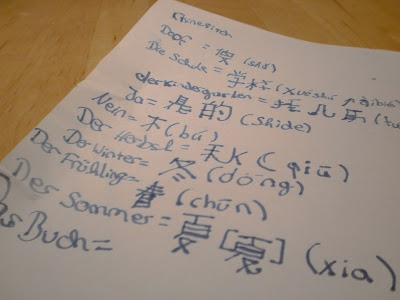 Chinesisch
Doof = 傻 (shǎ)
Die Schule = 学校 (xuéshú
der Kindergarten = 托儿所
Ja = 是的 (Shide)
Nein = 不 (bú)
Der Herbst = 秋 (qiū)
Der Winter = 冬 (dōng)
Der Frühling = 春 (chūn)
Der Sommer = 夏 [夏] (xia)
Das Buch =